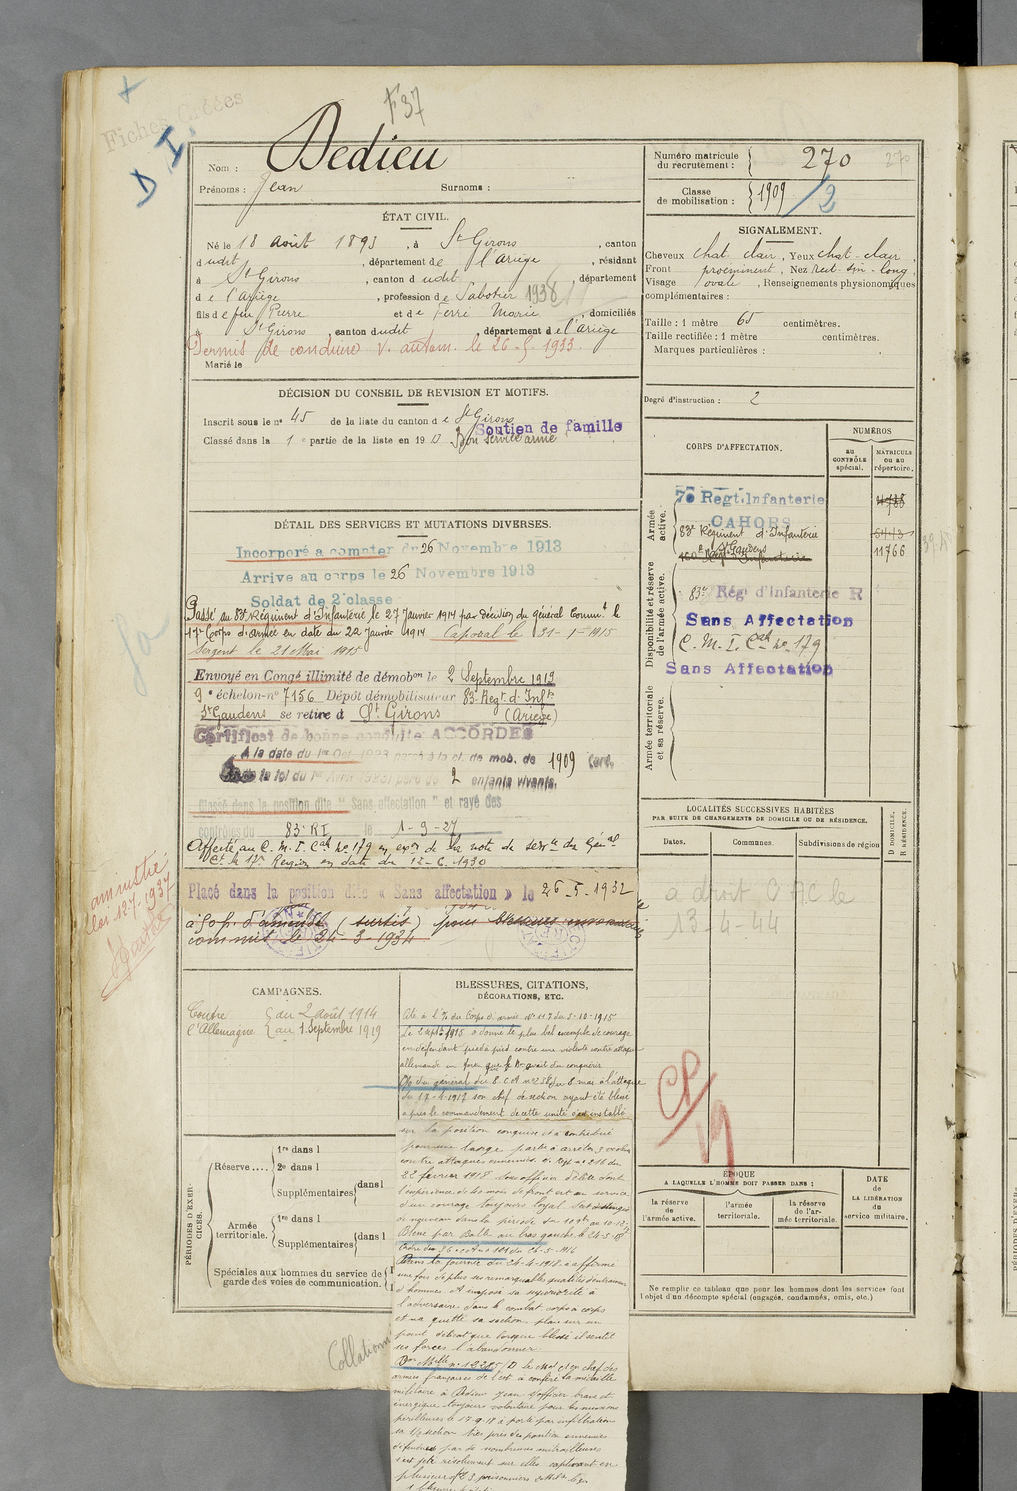 Fiches Créées
F37
D. I.
Nom : Dedieu
Prénoms : Jean Surnoms :
Numéro matricule du recrutement : 270 270
Classe de mobilisation : 1909 /2
ÉTAT CIVIL.
Né le 18 août 1893, à St Girons, canton
dudit, département de l'Ariège, résidant
à St Girons, canton dudit, département
de l'Ariège, profession de Sabotier 1938
fils de feu Pierre et de Ferré Marie, domiciliés
à St Girons, canton dudit, département de l'Ariège
Permis de conduire V. autom. le 26-5-1933
Marié le
SIGNALEMENT.
Cheveux chat. clair, Yeux chat-clair,
Front proeminent, Nez rect. sin-long,
Visage ovale, Renseignements physionomiques
complémentaires :
Taille : 1 mètre 65 centimètres.
Taille rectifiée : 1 mètre centimètres.
Marques particulières :
Degré d'instruction : 2
DÉCISION DU CONSEIL DE REVISION ET MOTIFS.
Inscrit sous le n° 45 de la liste du canton de St Girons
Classé dans la 1e partie de la liste en 19 Bon service armé
Soutien de famille
CORPS D'AFFECTATION.
NUMÉROS
AU CONTRÔLE spécial.
MATRICULE ou au répertoire.
Armée active.
7e Regt. Infanterie
CAHORS
83e Régiment d'Infanterie
St Gaudens
11766
Disponibilité et réserve de l'armée active.
83e Régt d'Infanterie R
Sans Affectation
C. M. I. Cal no 179
Sans Affectation
Armée territoriale et sa réserve.
DÉTAIL DES SERVICES ET MUTATIONS DIVERSES.
Incorporé a compter du 26 Novembre 1913
Arrive au corps le 26 Novembre 1913
Soldat de 2e classe
Passé au 83e Régiment d'Infanterie le 27 Janvier 1914 par décision du général Commt le
17e Corps d'Armée en date du 22 Janvier 1914 Caporal le 31-1-1915
Sergent le 21 Mai 1915
Envoyé en Congé illimité de démobon le 2 Septembre 1919
9e échelon-n° 7156 Dépôt démobilisateur 83e Regt d'Infie
St Gaudens se retire à St Girons (Ariège)
Certificat de bonne conduite ACCORDÉ
A la date du 1er Oct. 1923 passé à la cl. de mob. de 1909
de la loi du 1er Avril 1923) père de 2 enfants vivants.
Classé dans la position dite " Sans affectation " et rayé des
contrôles du 83e RI le 1-9-27
Affecté au C. M. I. Cal no 179 en exon de la note de serce du Génal
Ct la 17e Région en date du 12-6-1930
Placé dans la position dite « Sans affectation » le 26-5-1932
à 50 f. d'amende (sursis) pour
commis le 24-3-1934
amnistié
loi 12.7.1937
LOCALITÉS SUCCESSIVES HABITÉES
PAR SUITE DE CHANGEMENTS DE DOMICILE OU DE RÉSIDENCE.
Dates. Communes. Subdivisions de région
D DOMICILE. R RÉSIDENCE.
a droit C AC le
13-4-44
CAMPAGNES.
Contre { du 2 août 1914
l'Allemagne { au 1 Septembre 1919
BLESSURES, CITATIONS,
DÉCORATIONS, ETC.
Cité à l'O. du Corps d'armée n° 117 du 5-10-1915
Le 1915 a donné le plus bel exemple de courage
en défendant pied à pied contre une violente contre attaque
allemande un qu'il avait conquis
O. du général du 8-C.A. du 8 mai à l'attaque
du 17-4-1917 son chef de section ayant été blessé
a pris le commandement de cette unité s'est installé
sur la position conquise et a contribué
pour une large part à arrêter 3
contre attaques ennemies. O. Régt n° 216 du
22 février 1918 Sous officier d'élite dont
l'expérience de 40 mois de front est au service
d'un courage toujours loyal. S'est distingué
à nouveau dans la période du
Blessé par Balle au bras gauche le 24-5-18
Dans la journée du 24-4-1918 a affirmé
une fois de plus ses remarquables qualités d'entraineur
d'hommes. A imposé sa supériorité à
l'adversaire dans le combat corps à corps
et n'a quitté sa section placée sur un
point délicat que lorsque blessé il sentit
ses forces l'abandonner.
Don Mlle n° 12285/D le Mal Ct en chef des
armées françaises de l'est a conféré la médaille
militaire à Dedieu Jean S/officier brave et
énergique toujours volontaire pour les missions
périlleuses le 17-9-18 a porté par infiltration
sa 1/2 section très près des positions ennemies
défendues par de nombreuses mitrailleuses
s'est jeté résolument sur elles capturant en
plusieurs prisonniers
CP
PÉRIODES D'EXERCICES.
Réserve....
1re dans l
2e dans l
Supplémentaires dans l
Armée territoriale.
1re dans l
Supplémentaires dans l
Spéciales aux hommes du service de
garde des voies de communication.
ÉPOQUE
A LAQUELLE L'HOMME DOIT PASSER DANS :
la réserve de l'armée active.
l'armée territoriale.
la réserve de l'armée territoriale.
DATE de LA LIBÉRATION du service militaire.
Ne remplir ce tableau que pour les hommes dont les services font
l'objet d'un décompte spécial (engagés, condamnés, omis, etc.)
Collationné